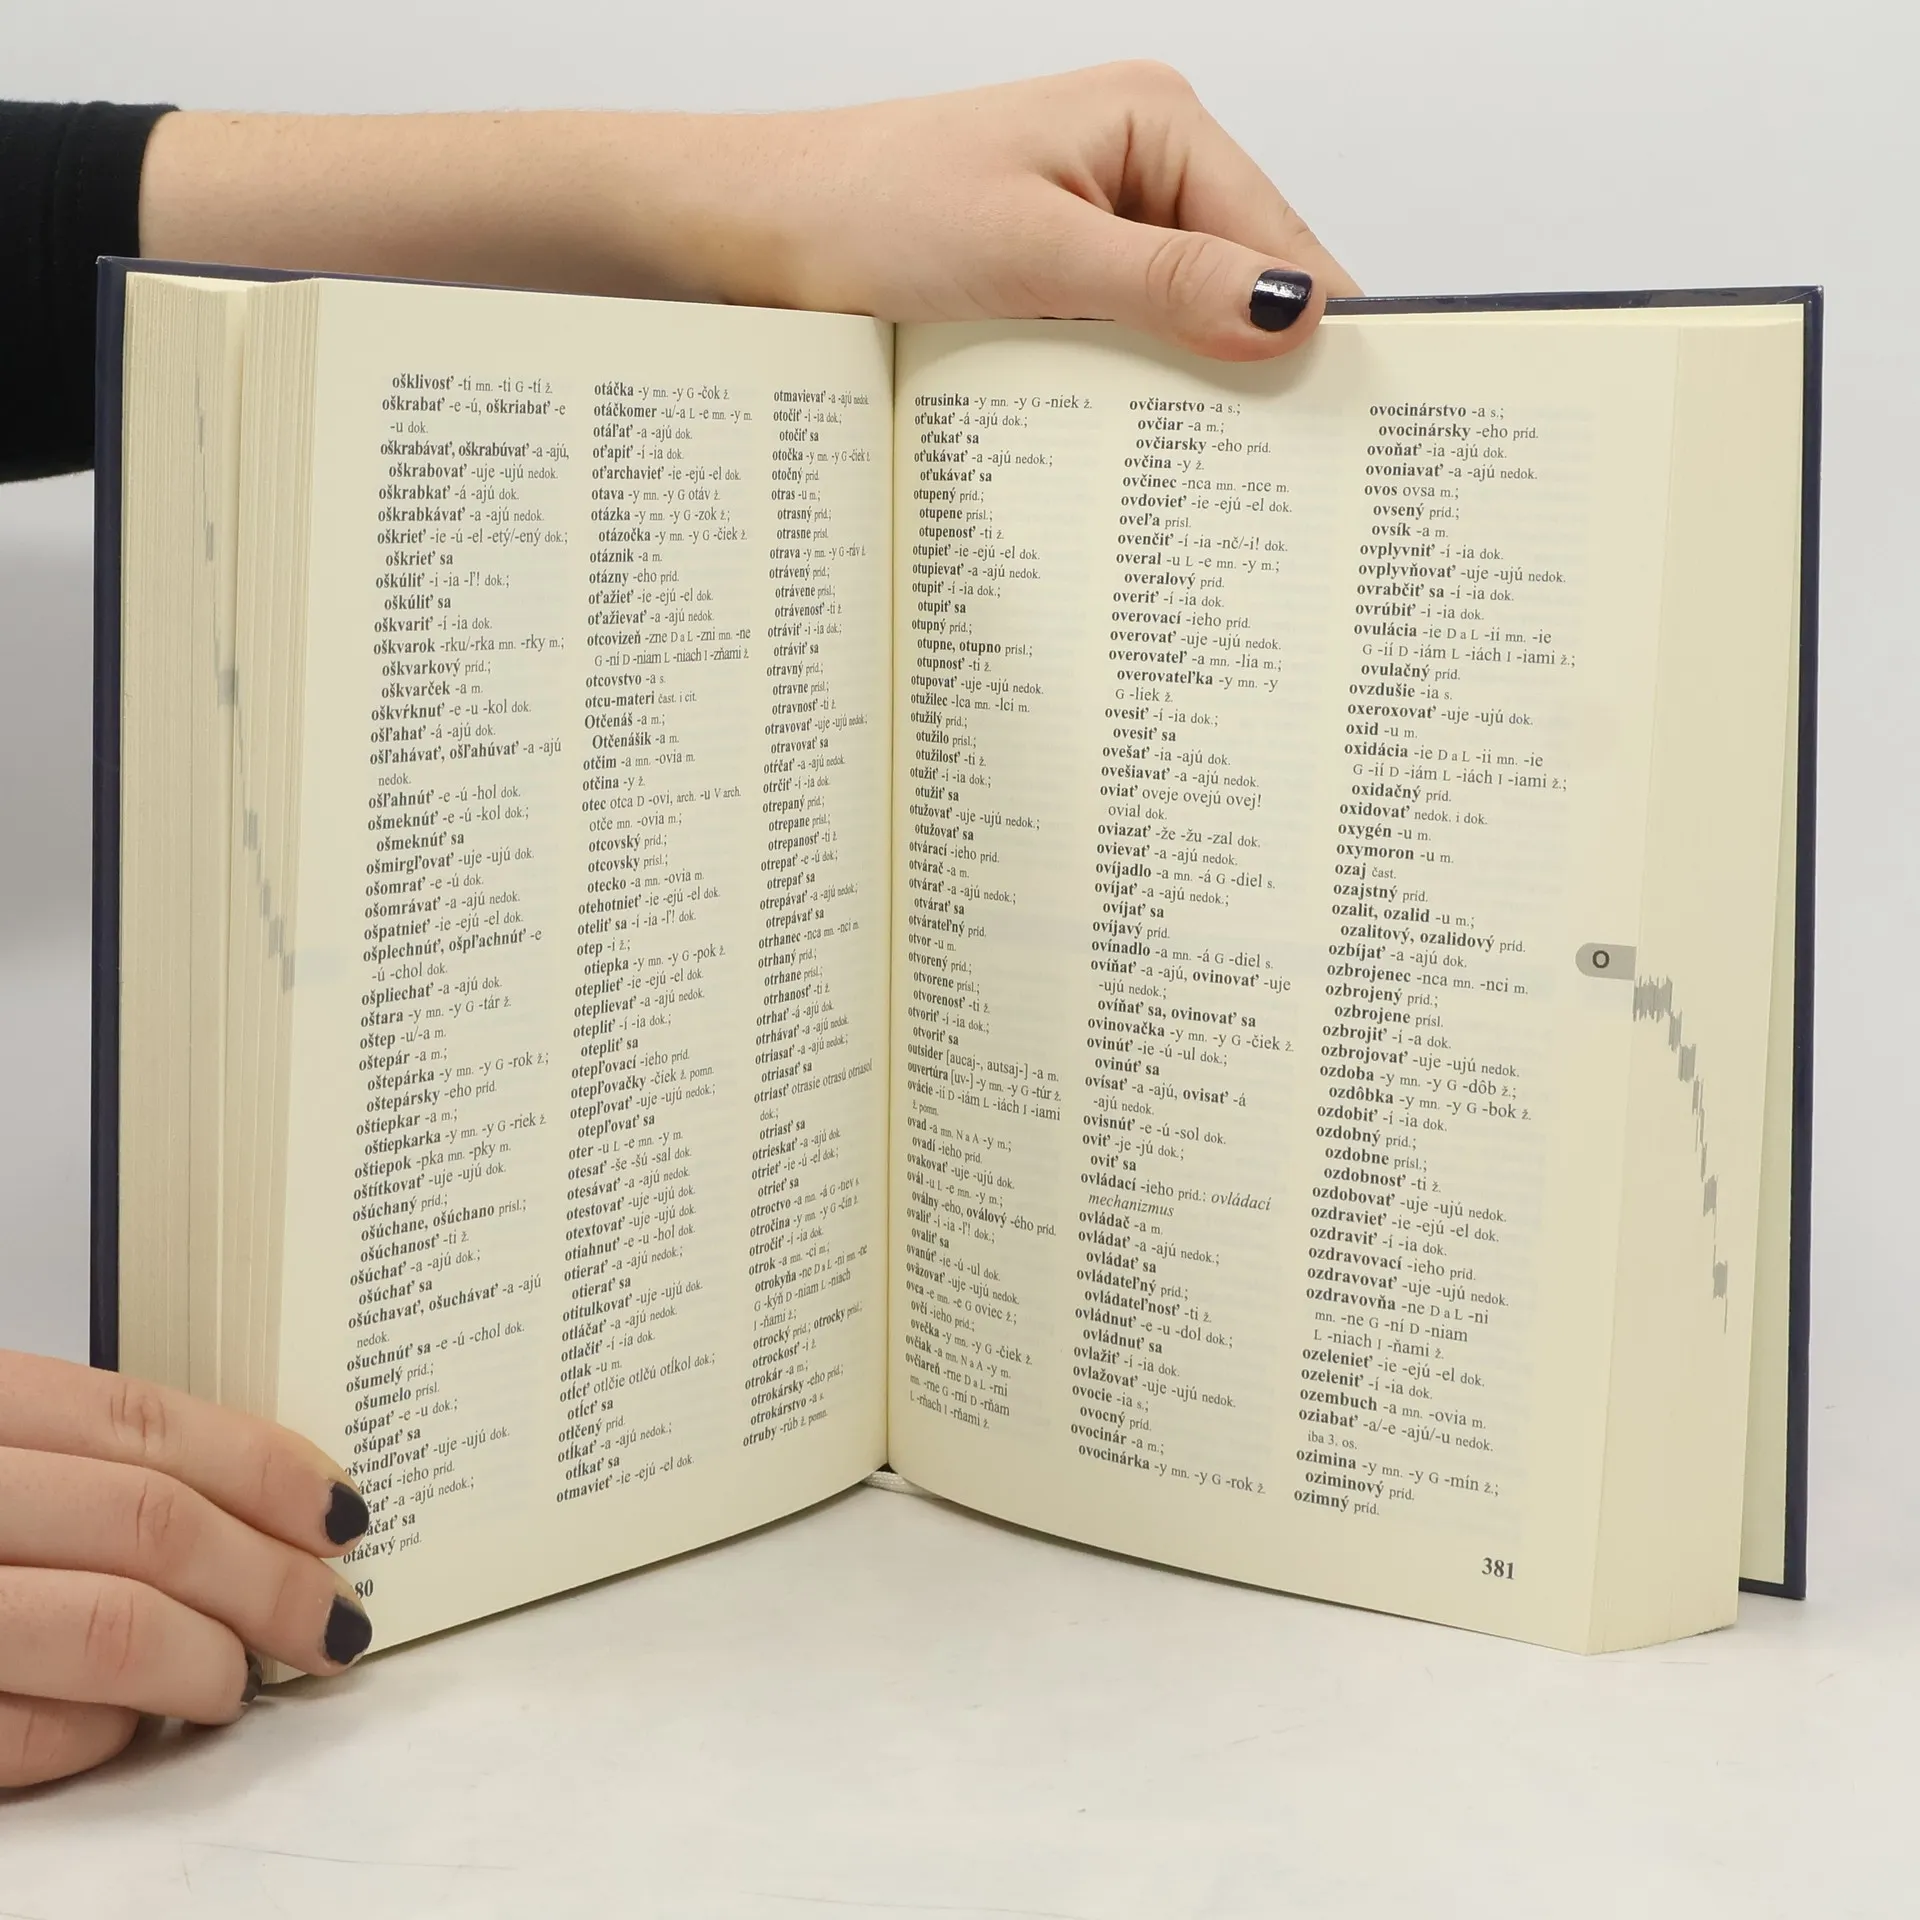 ošklivosť -ti mn. -ti G -tí ž.
oškrabať -e -ú, oškriabať -e
-u dok.
oškrabávať, oškrabúvať -a -ajú,
oškrabovať -uje -ujú nedok.
oškrabkať -á -ajú dok.
oškrabkávať -a -ajú nedok.
oškrieť -ie -ú -el -etý/-ený dok.;
oškrieť sa
oškúliť -i -ia -ľ! dok.;
oškúliť sa
oškvariť -í -ia dok.
oškvarok -rku/-rka mn. -rky m.;
oškvarkový príd.;
oškvarček -a m.
oškvŕknuť -e -u -kol dok.
ošľahať -á -ajú dok.
ošľahávať, ošľahúvať -a -ajú
nedok.
ošľahnúť -e -ú -hol dok.
ošmeknúť -e -ú -kol dok.;
ošmeknúť sa
ošmirgľovať -uje -ujú dok.
ošomrať -e -ú dok.
ošomrávať -a -ajú nedok.
ošpatnieť -ie -ejú -el dok.
ošplechnúť, ošpľachnúť -e
-ú -chol dok.
ošpliechať -a -ajú dok.
oštara -y mn. -y G -tár ž.
oštep -u/-a m.
oštepár -a m.;
oštepárka -y mn. -y G -rok ž.;
oštepársky -eho príd.
oštiepkar -a m.;
oštiepkarka -y mn. -y G -riek ž.
oštiepok -pka mn. -pky m.
oštítkovať -uje -ujú dok.
ošúchaný príd.;
ošúchane, ošúchano prísl.;
ošúchanosť -ti ž.
ošúchať -a -ajú dok.;
ošúchať sa
ošúchavať, ošuchávať -a -ajú
nedok.
ošuchnúť sa -e -ú -chol dok.
ošumelý príd.;
ošumelo prísl.
ošúpať -e -u dok.;
ošúpať sa
ošvindľovať -uje -ujú dok.
áčací -ieho príd.
čať -a -ajú nedok.;
áčať sa
otáčavý príd.
80
otáčka -y mn. -y G -čok ž.
otáčkomer -u/-a L -e mn. -y m.
otáľať -a -ajú dok.
oťapiť -í -ia dok.
oťarchavieť -ie -ejú -el dok.
otava -y mn. -y G otáv ž.
otázka -y mn. -y G -zok ž.;
otázočka -y mn. -y G -čiek ž.
otáznik -a m.
otázny -eho príd.
oťažieť -ie -ejú -el dok.
oťažievať -a -ajú nedok.
otcovizeň -zne D a L -zni mn. -ne
G -ní D -niam L -niach I -zňami ž.
otcovstvo -a s.
otcu-materi čast. i cit.
Otčenáš -a m.;
Otčenášik -a m.
otčim -a mn. -ovia m.
otčina -y ž.
otec otca D -ovi, arch. -u V arch.
otče mn. -ovia m.;
otcovský príd.;
otcovsky prísl.;
otecko -a mn. -ovia m.
otehotnieť -ie -ejú -el dok.
oteliť sa -í -ia -ľ! dok.
otep -i ž.;
otiepka -y mn. -y G -pok ž.
oteplieť -ie -ejú -el dok.
oteplievať -a -ajú nedok.
otepliť -í -ia dok.;
otepliť sa
otepľovací -ieho príd.
otepľovačky -čiek ž. pomn.
otepľovať -uje -ujú nedok.;
otepľovať sa
oter -u L -e mn. -y m.
otesať -še -šú -sal dok.
otesávať -a -ajú nedok.
otestovať -uje -ujú dok.
otextovať -uje -ujú dok.
otiahnuť -e -u -hol dok.
otierať -a -ajú nedok.;
otierať sa
otitulkovať -uje -ujú dok.
otláčať -a -ajú nedok.
otlačiť -í -ia dok.
otlak -u m.
otĺcť otlčie otlčú otĺkol dok.;
otĺcť sa
otlčený príd.
otĺkať -a -ajú nedok.;
otĺkať sa
otmavieť -ie -ejú -el dok.
otmavievať -a -ajú nedok.
otočiť -í -ia dok.;
otočiť sa
otočka -y mn. -y G -čiek ž.
otočný príd.
otras -u m.;
otrasný príd.;
otrasne prísl.
otrava -y mn. -y G -ráv ž.
otrávený príd.;
otrávene prísl.;
otrávenosť -ti ž.
otráviť -i -ia dok.;
otráviť sa
otravný príd.;
otravne prísl.;
otravnosť -ti ž.
otravovať -uje -ujú nedok.;
otravovať sa
otŕčať -a -ajú nedok.
otrčiť -í -ia dok.
otrepaný príd.;
otrepane prísl.;
otrepanosť -ti ž.
otrepať -e -ú dok.;
otrepať sa
otrepávať -a -ajú nedok.;
otrepávať sa
otrhanec -nca mn. -nci m.
otrhaný príd.;
otrhane prísl.;
otrhanosť -ti ž.
otrhať -á -ajú dok.
otrhávať -a -ajú nedok.
otriasať -a -ajú nedok.;
otriasať sa
otriasť otrasie otrasú otriasol
dok.;
otriasť sa
otrieskať -a -ajú dok.
otrieť -ie -ú -el dok.;
otrieť sa
otroctvo -a mn. -á G -tiev s.
otročina -y mn. -y G -čin ž.
otročiť -í -ia dok.
otrok -a mn. -ci m.;
otrokyňa -ne D a L -ni mn. -ne
G -kýň D -niam L -niach
I -ňami ž.;
otrocký príd.; otrocky prísl.;
otrockosť -i ž.
otrokár -a m.;
otrokársky -eho príd.;
otrokárstvo -a s.
otruby -rúb ž. pomn.
otrusinka -y mn. -y G -niek ž.
oťukať -á -ajú dok.;
oťukať sa
oťukávať -a -ajú nedok.;
oťukávať sa
otupený príd.;
otupene prísl.;
otupenosť -ti ž.
otupieť -ie -ejú -el dok.
otupievať -a -ajú nedok.
otupiť -í -ia dok.;
otupiť sa
otupný príd.;
otupne, otupno prísl.;
otupnosť -ti ž.
otupovať -uje -ujú nedok.
otužilec -lca mn. -lci m.
otužilý príd.;
otužilo prísl.;
otužilosť -ti ž.
otužiť -í -ia dok.;
otužiť sa
otužovať -uje -ujú nedok.;
otužovať sa
otvárací -ieho príd.
otvárač -a m.
otvárať -a -ajú nedok.;
otvárať sa
otvárateľný príd.
otvor -u m.
otvorený príd.;
otvorene prísl.;
otvorenosť -ti ž.
otvoriť -í -ia dok.;
otvoriť sa
outsider [aucaj-, autsaj-] -a m.
ouvertúra [uv-] -y mn. -y G -túr ž.
ovácie -ií D -iám L -iách I -iami
ž. pomn.
ovad -a mn. N a A -y m.;
ovadí -ieho príd.
ovakovať -uje -ujú dok.
ovál -u L -e mn. -y m.;
oválny -eho, oválový -ého príd.
ovaliť -í -ia -ľ! dok.;
ovaliť sa
ovanúť -ie -ú -ul dok.
oväzovať -uje -ujú nedok.
ovca -e mn. -e G oviec ž.;
ovčí -ieho príd.;
ovečka -y mn. -y G -čiek ž.
ovčiak -a mn. N a A -y m.
ovčiareň -rne D a L -rni
mn. -rne G -rní D -rňam
L -rňach I -rňami ž.
ovčiarstvo -a s.;
ovčiar -a m.;
ovčiarsky -eho príd.
ovčina -y ž.
ovčinec -nca mn. -nce m.
ovdovieť -ie -ejú -el dok.
oveľa prísl.
ovenčiť -í -ia -nč/-i! dok.
overal -u L -e mn. -y m.;
overalový príd.
overiť -í -ia dok.
overovací -ieho príd.
overovať -uje -ujú nedok.
overovateľ -a mn. -lia m.;
overovateľka -y mn. -y
G -liek ž.
ovesiť -í -ia dok.;
ovesiť sa
ovešať -ia -ajú dok.
ovešiavať -a -ajú nedok.
oviať oveje ovejú ovej!
ovial dok.
oviazať -že -žu -zal dok.
ovievať -a -ajú nedok.
ovíjadlo -a mn. -á G -diel s.
ovíjať -a -ajú nedok.;
ovíjať sa
ovíjavý príd.
ovínadlo -a mn. -á G -diel s.
ovíňať -a -ajú, ovinovať -uje
-ujú nedok.;
ovíňať sa, ovinovať sa
ovinovačka -y mn. -y G -čiek ž.
ovinúť -ie -ú -ul dok.;
ovinúť sa
ovísať -a -ajú, ovisať -á
-ajú nedok.
ovisnúť -e -ú -sol dok.
oviť -je -jú dok.;
oviť sa
ovládací -ieho príd.: ovládací
mechanizmus
ovládač -a m.
ovládať -a -ajú nedok.;
ovládať sa
ovládateľný príd.;
ovládateľnosť -ti ž.
ovládnuť -e -u -dol dok.;
ovládnuť sa
ovlažiť -í -ia dok.
ovlažovať -uje -ujú nedok.
ovocie -ia s.;
ovocný príd.
ovocinár -a m.;
ovocinárka -y mn. -y G -rok ž.
ovocinárstvo -a s.;
ovocinársky -eho príd.
ovoňať -ia -ajú dok.
ovoniavať -a -ajú nedok.
ovos ovsa m.;
ovsený príd.;
ovsík -a m.
ovplyvniť -í -ia dok.
ovplyvňovať -uje -ujú nedok.
ovrabčiť sa -í -ia dok.
ovrúbiť -i -ia dok.
ovulácia -ie D a L -ii mn. -ie
G -ií D -iám L -iách I -iami ž.;
ovulačný príd.
ovzdušie -ia s.
oxeroxovať -uje -ujú dok.
oxid -u m.
oxidácia -ie D a L -ii mn. -ie
G -ií D -iám L -iách I -iami ž.;
oxidačný príd.
oxidovať nedok. i dok.
oxygén -u m.
oxymoron -u m.
ozaj čast.
ozajstný príd.
ozalit, ozalid -u m.;
ozalitový, ozalidový príd.
ozbíjať -a -ajú dok.
ozbrojenec -nca mn. -nci m.
ozbrojený príd.;
ozbrojene prísl.
ozbrojiť -í -a dok.
ozbrojovať -uje -ujú nedok.
ozdoba -y mn. -y G -dôb ž.;
ozdôbka -y mn. -y G -bok ž.
ozdobiť -í -ia dok.
ozdobný príd.;
ozdobne prísl.;
ozdobnosť -ti ž.
ozdobovať -uje -ujú nedok.
ozdravieť -ie -ejú -el dok.
ozdraviť -í -ia dok.
ozdravovací -ieho príd.
ozdravovať -uje -ujú nedok.
ozdravovňa -ne D a L -ni
mn. -ne G -ní D -niam
L -niach I -ňami ž.
ozelenieť -ie -ejú -el dok.
ozeleniť -í -ia dok.
ozembuch -a mn. -ovia m.
oziabať -a/-e -ajú/-u nedok.
iba 3. os.
ozimina -y mn. -y G -mín ž.;
oziminový príd.
ozimný príd.
O
381